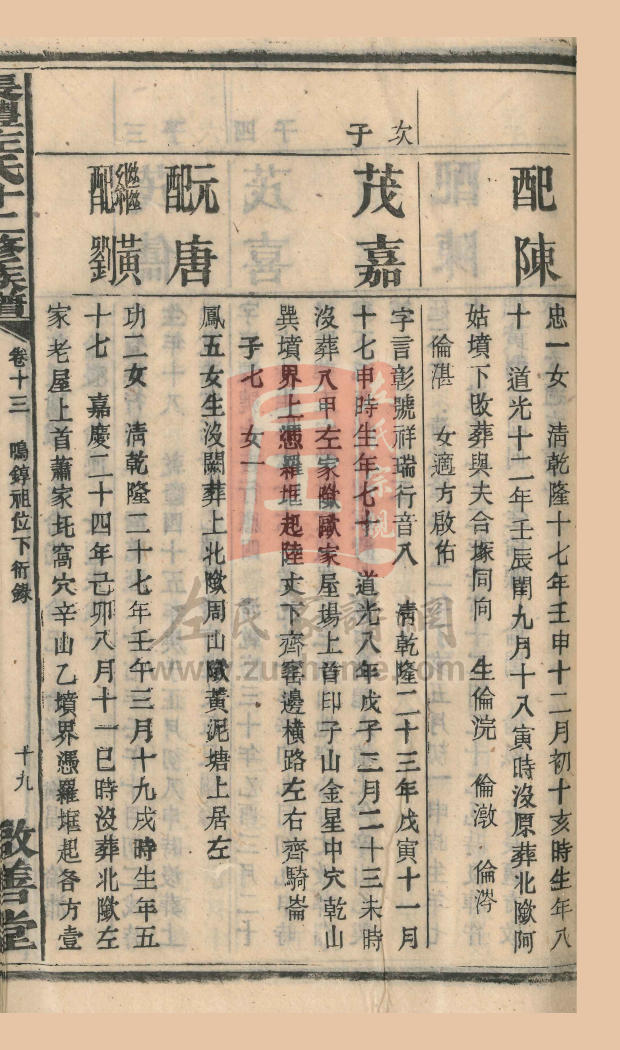 配陳
忠一女 清乾隆十七年壬申十二月初十亥時生年八
十 道光十二年壬辰閏九月十八寅時沒原葬北歐阿
姑墳下改葬與夫合塚同向 生倫浣 倫激 倫涔
倫湛 女適方啟佑
次子
茂嘉
字言彰號祥瑞行音八 清乾隆二十三年戊寅十一月
十七申時生年七十 道光八年戊子三月二十三未時
沒葬八甲左家歐家屋場上首印子山金星中穴乾山
巽墳界上憑羅堀起陸丈下齊窰邊橫路左右齊騎崙
子七 女一
阮配唐
鳳五女生沒闕葬上北歐周山黃泥塘上居左
繼配黃劉
功二女 清乾隆二十七年壬午三月十九戌時生年五
十七 嘉慶二十四年己卯八月十一巳時沒葬北左
家老屋上首蕭家窩穴辛山乙墳界憑羅堀起各方壹
左氏十二修族譜
卷十三 鳴錞祖位下衍錄
十九
敦善堂
左氏家譜網
www.zu